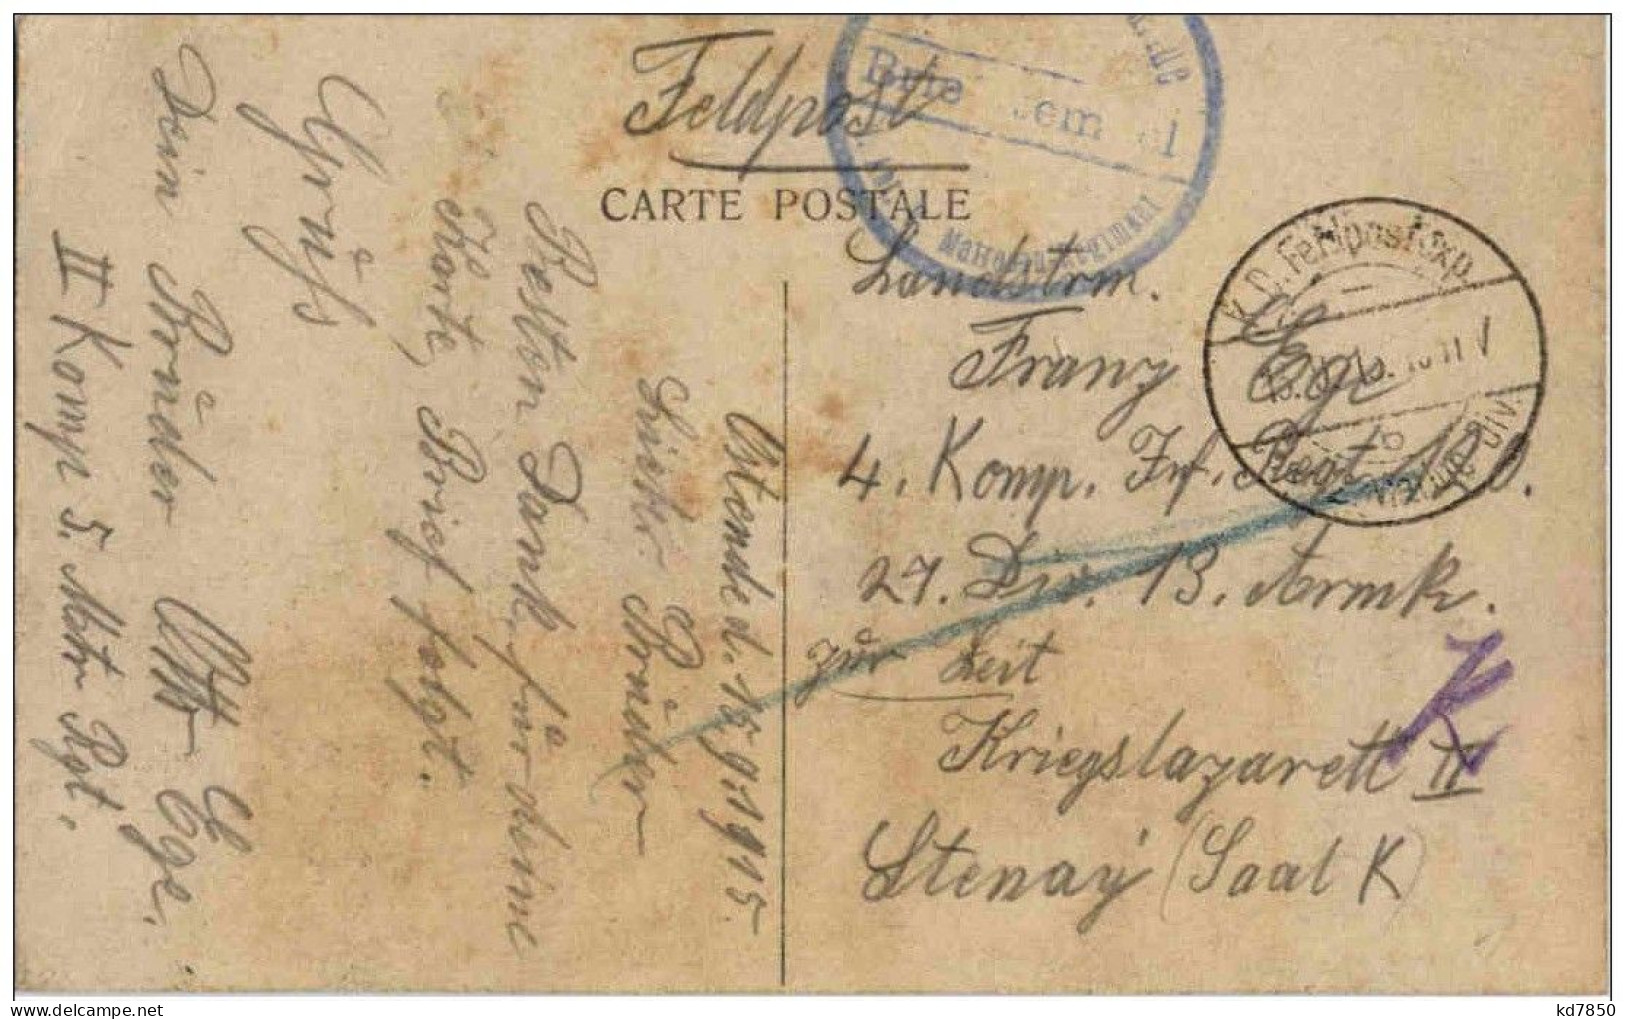 Feldpost
CARTE POSTALE
Briefstempel
Matrosen Regiment
K.D. Feldpostexp.
Marine Div.
Landstrm.
Franz Ege
4. Komp. Inf. Regt.
27. Div. 13. Armk.
zur Zeit
Kriegslazarett II
Stenaÿ (Saal K)
K
Ostende d. 15.9.1915.
Lieber Brŭder
Besten Dank für deine
Karte, Brief folgt.
Grŭß
Dein Brŭder Otto Ege.
II Komp 5. Matr. Rgt.
kd7850